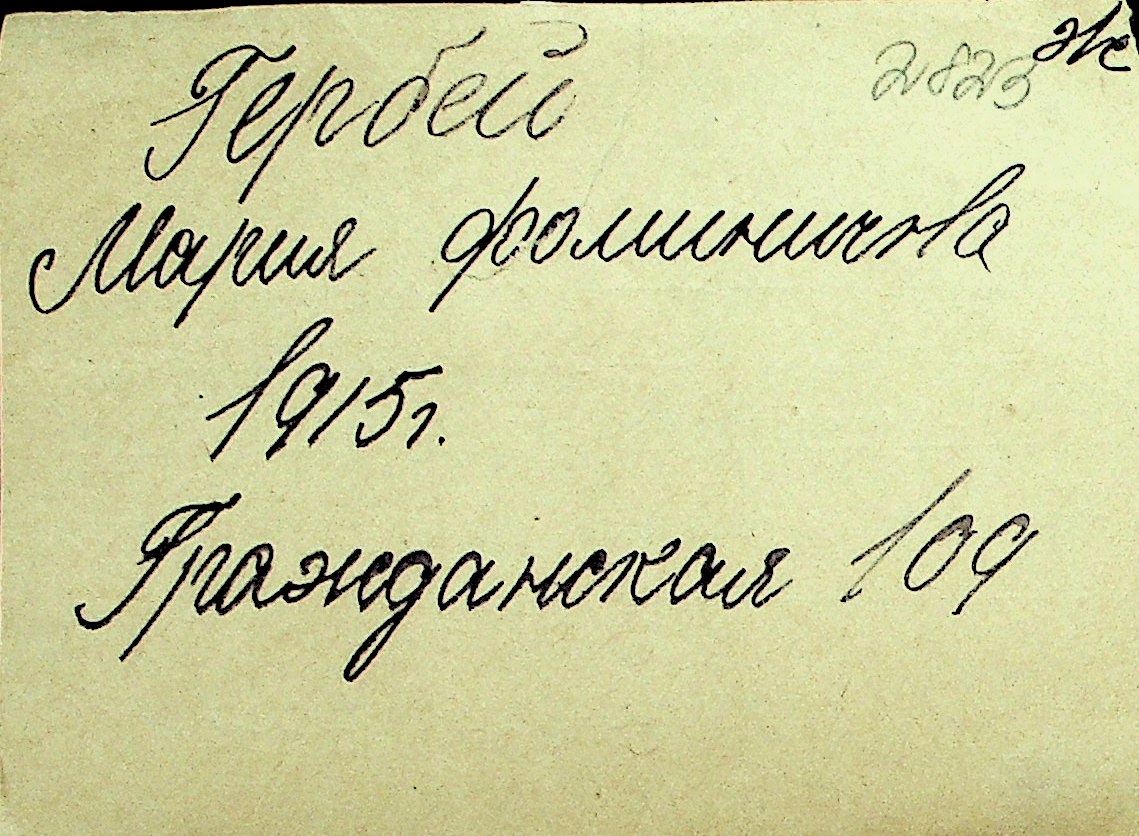 2823 Ж
Гербей
Мария Фоминична
1915г.
Гражданская 109